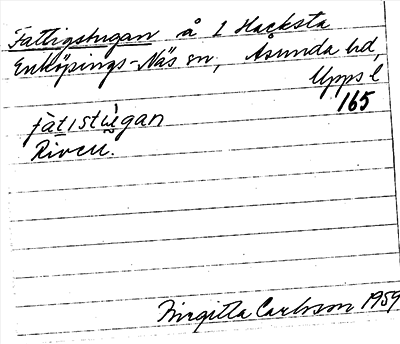 Fattigstugan å 2 Hacksta
Enköpings-Näs sn, Åsunda hd,
Upps l
165
fàtιstùgan
Riven.
Birgitta Carlsson 1959